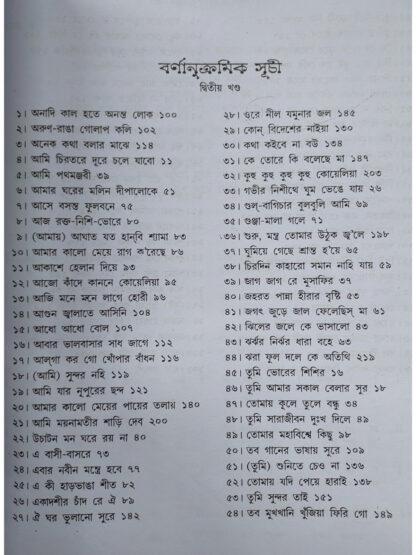 বর্ণানুক্রমিক সূচী
দ্বিতীয় খণ্ড
১। অনাদি কাল হতে অনন্ত লোক ১০০
২। অরুণ-রাঙা গোলাপ কলি ১০২
৩। অনেক কথা বলার মাঝে ১১৪
৪। আমি চিরতরে দূরে চলে যাবো ১১
৫। আমি পথমঞ্জরী ৩৯
৬। আমার ঘরের মলিন দীপালোকে ৫১
৭। আসে বসন্ত ফুলবনে ৭৫
৮। আজ রক্ত-নিশি-ভোরে ৮০
৯। (আমায়) আঘাত যত হানবি শ্যামা ৮৩
১০। আমার কালো মেয়ে রাগ ক'রেছে ৮৬
১১। আকাশে হেলান দিয়ে ৯৩
১২। আজো কাঁদে কাননে কোয়েলিয়া ৯৫
১৩। আজি মনে মনে লাগে হোরী ৯৬
১৪। আগুন জ্বালাতে আসিনি ১০৪
১৫। আধো আধো বোল ১০৭
১৬। আবার ভালবাসার সাধ জাগে ১১২
১৭। আল্‌গা কর গো খোঁপার বাঁধন ১১৬
১৮। (আমি) সুন্দর নহি ১১৯
১৯। আমি যার নূপুরের ছন্দ ১২১
২০। আমার কালো মেয়ের পায়ের তলায় ১৪০
২১। আমি ময়নামতীর শাড়ি দেব ২০০
২২। উচাটন মন ঘরে রয় না ৪০
২৩। এ বাসী-বাসরে ৭৩
২৪। এবার নবীন মন্ত্রে হবে ৭৭
২৫। এ কী হাড়ভাঙা শীত ৮২
২৬। একাদশীর চাঁদ রে ঐ ৮৯
২৭। ঐ ঘর ভুলানো সুরে ১৪২
২৮। ওরে নীল যমুনার জল ১৪৫
২৯। কোন্ বিদেশের নাইয়া ১৩০
৩০। কথা কইবে না বউ ১৩৪
৩১। কে তোরে কি বলেছে মা ১৪৭
৩২। কুহু কুহু কুহু কুহু কোয়েলিয়া ২০৩
৩৩। গভীর নিশীথে ঘুম ভেঙে যায় ২৬
৩৪। গুল্-বাগিচার বুলবুলি আমি ৬৯
৩৫। গুঞ্জা-মালা গলে ৭১
৩৬। গুরু, মন্ত্র তোমার উঠুক জ্ব'লে ১৯৮
৩৭। ঘুমিয়ে গেছে শ্রান্ত হ'য়ে ৬৫
৩৮। চিরদিন কাহারো সমান নাহি যায় ৫৯
৩৯। জাগ জাগ রে মুসাফির ৩৭
৪০। জহরত পান্না হীরার বৃষ্টি ৫৩
৪১। জগৎ জুড়ে জাল ফেলেছিস্ মা ৬১
৪২। ঝিলের জলে কে ভাসালো ৪৩
৪৩। ঝর্ঝর নির্ঝর ধারা বহে ৬৩
৪৪। ঝরা ফুল দলে কে অতিথি ২১৯
৪৫। তুমি ভোরের শিশির ১৬
৪৬। তুমি আমার সকাল বেলার সুর ১৮
৪৭। তোমায় কূলে তুলে বন্ধু ৩৪
৪৮। তুমি সারাজীবন দুঃখ দিলে ৪৯
৪৯। তোমার মহাবিশ্বে কিছু ৯৮
৫০। তব গানের ভাষায় সুরে ১০৯
৫১। (তুমি) শুনিতে চেও না ১৩৬
৫২। তোমায় যদি পেয়ে হারাই ১৩৮
৫৩। তুমি সুন্দর তাই ১৫১
৫৪। তব মুখখানি খুঁজিয়া ফিরি গো ১৪৯